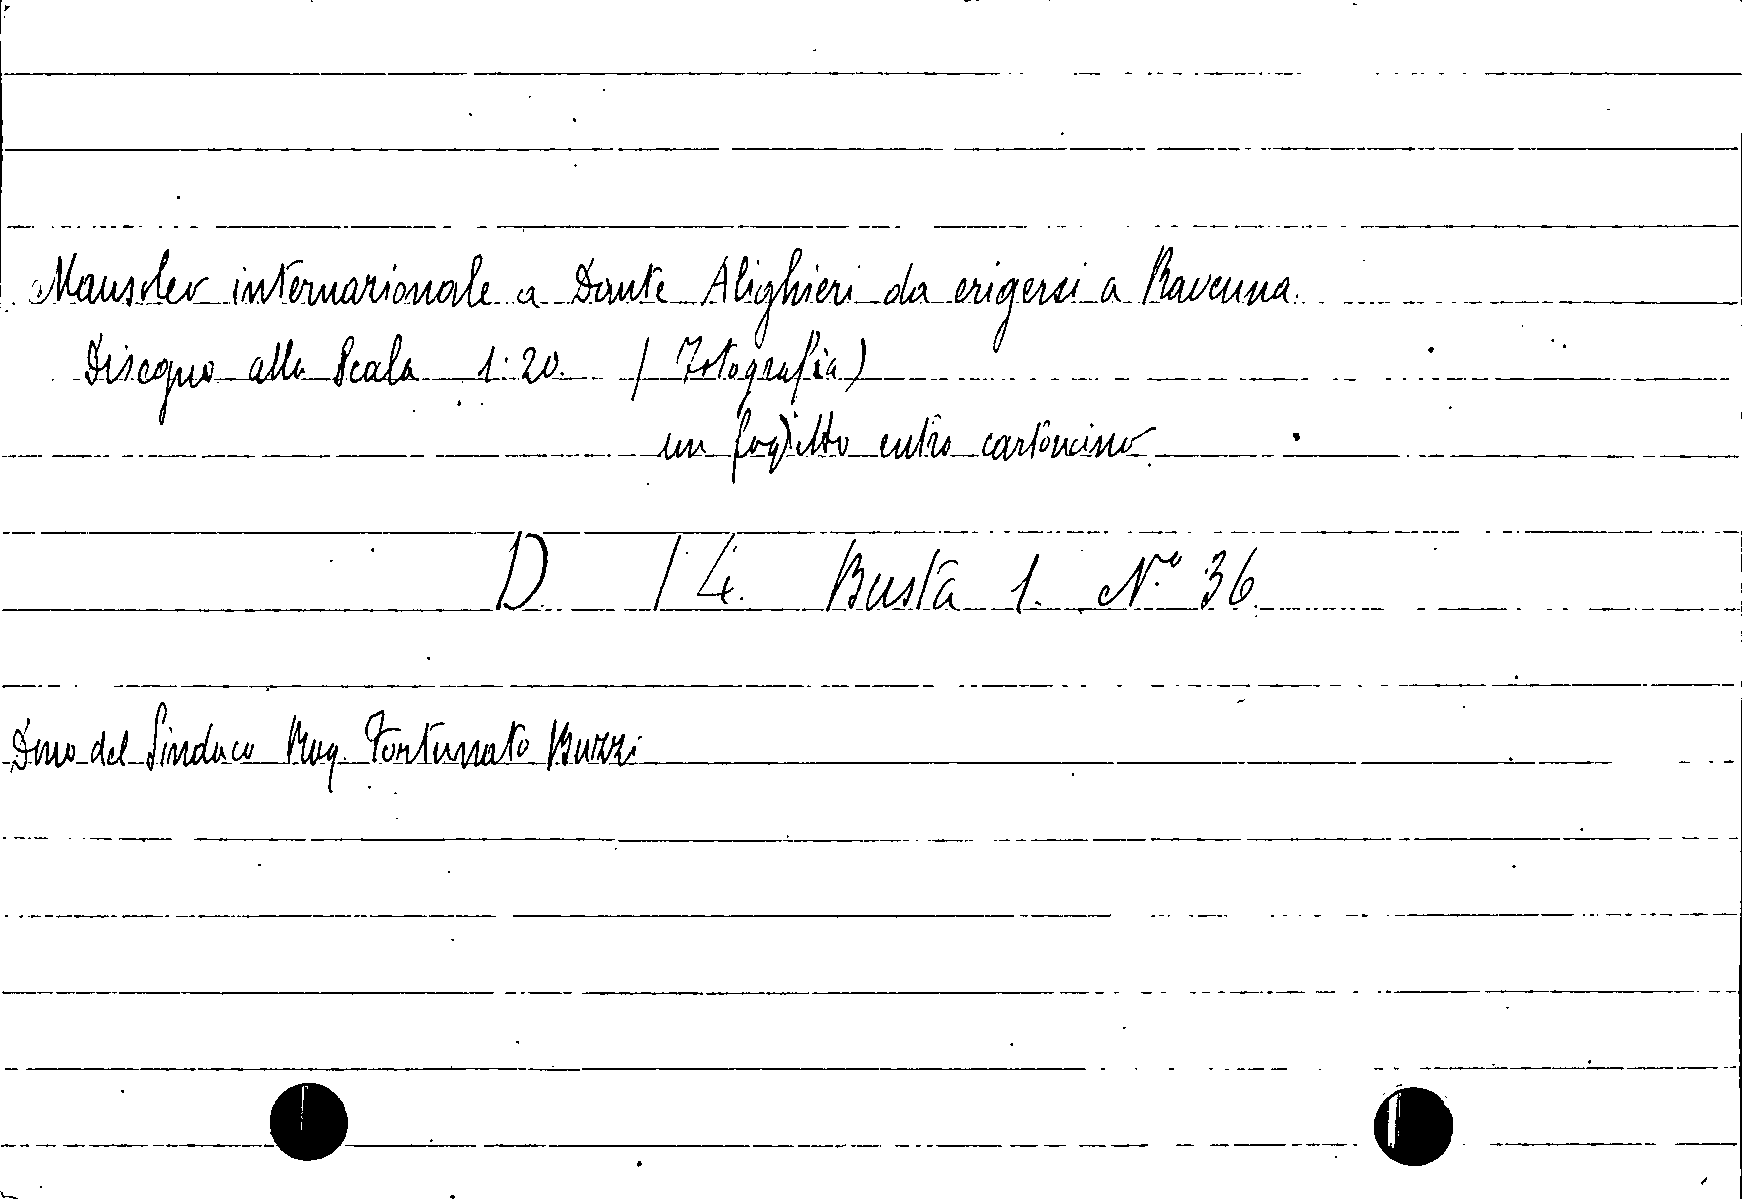 Mausoleo internazionale a Dante Alighieri da erigersi a Ravenna.
Disegno alla Scala 1:20. (Fotografia)
un foglietto entro cartoncino.
D. 14. Busta 1. N.º 36.
Dono del Sindaco Rag. Fortunato Buzzi